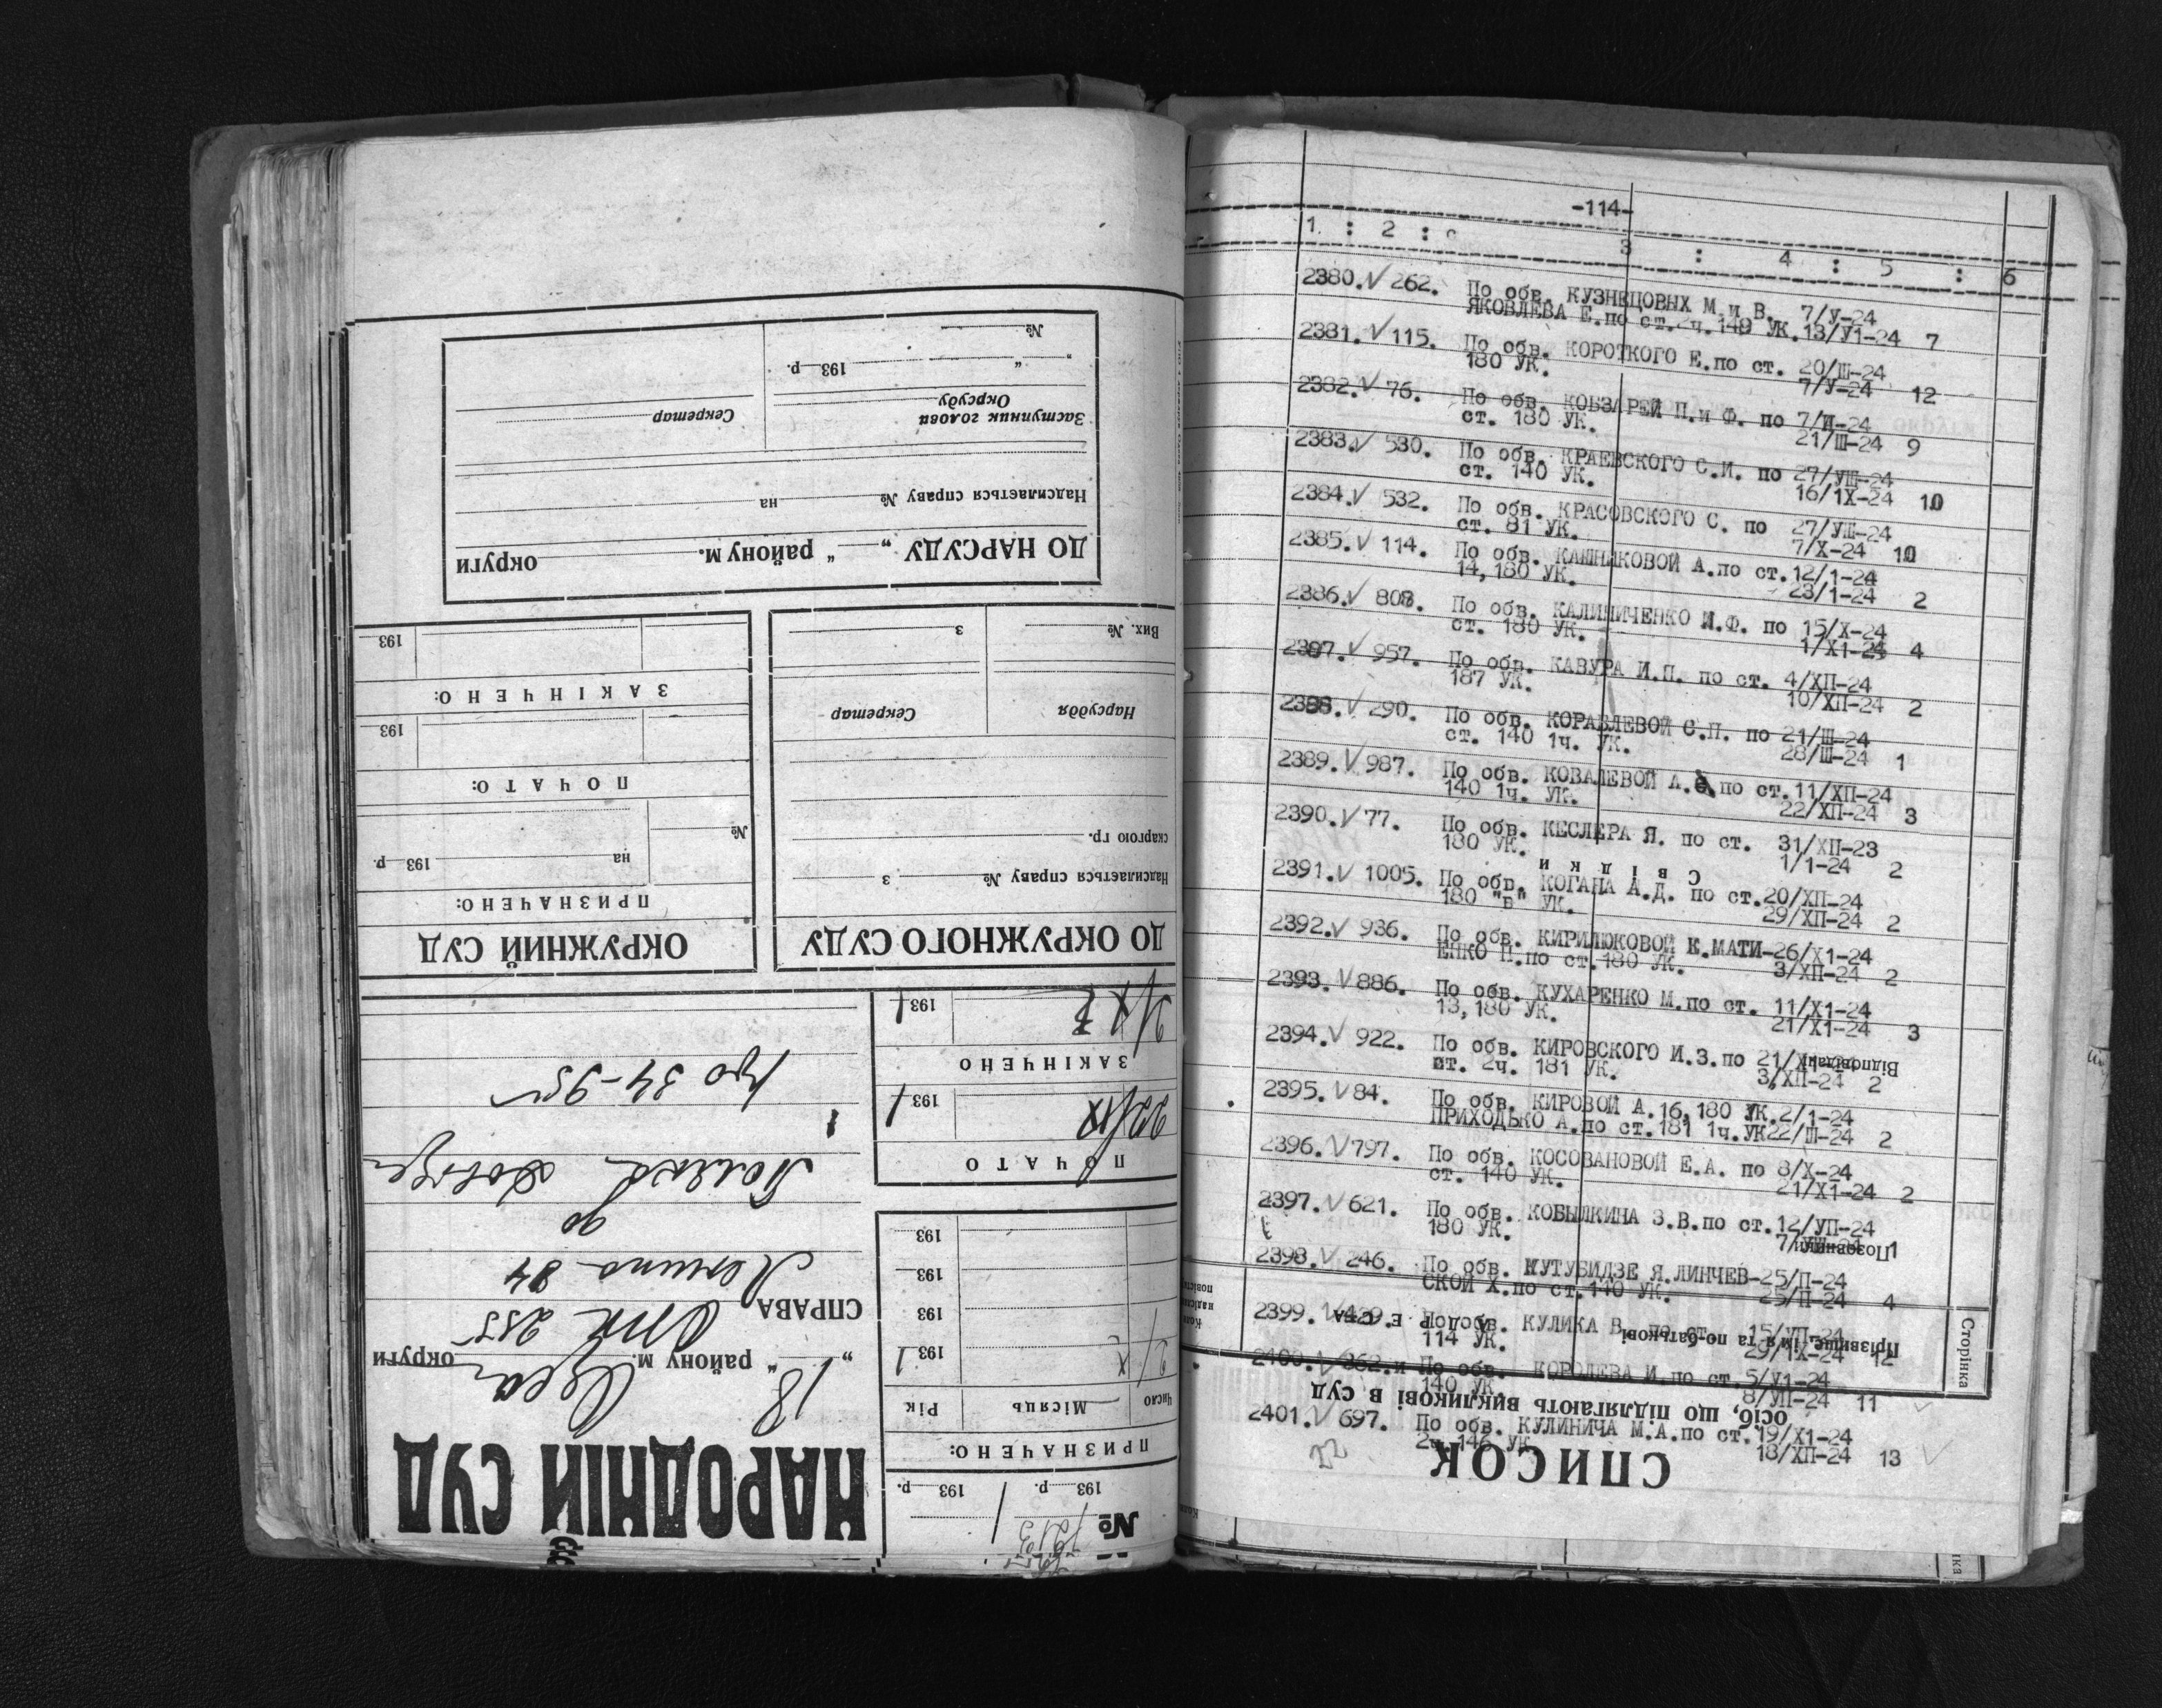 НАРОДНІЙ СУД
18
„ “ району м. округи
СПРАВА
Ленина 84
до
про 34-95
№
193 р. 193 р.
ПРИЗНАЧЕНО:
Число Місяць Рік
2/ X 193 1
193
193
193
ПОЧАТО
22/IX 193 1
ЗАКІНЧЕНО
193 1
ДО ОКРУЖНОГО СУДУ
Надсилається справу № з
скаргою гр.
Нарсуддя Секретар
Вих. № з
ОКРУЖНИЙ СУД
ПРИЗНАЧЕНО:
на 193 р
№
ПОЧАТО:
193
ЗАКІНЧЕНО:
193
ДО НАРСУДУ „ “ району м. округи
Надсилається справу № на
Заступник голови Окрсуду Секретар
„ “ 193 р.
№
-114-
1. : 2 : 3 : 4 : 5 : 6
2380. V 262. По обв. КУЗНЕЦОВЫХ М.и В. 7/У-24
ЯКОВЛЕВА Е.по ст.2ч.149 УК.13/У1-24 7
2381. V 115. По обв. КОРОТКОГО Е.по ст. 20/Ш-24
180 УК. 7/У-24 12
2382. V 76. По обв. КОБЗАРЕЙ П.и Ф. по 7/П-24
ст. 180 УК. 21/Ш-24 9
2383. V 530. По обв. КРАЕВСКОГО С.И. по 27/УШ-24
ст. 140 УК. 16/1Х-24 10
2384. V 532. По обв. КРАСОВСКОГО С. по 27/УШ-24
ст. 81 УК. 7/Х-24 10
2385. V 114. По обв. КАШНИКОВОЙ А.по ст.12/1-24
14,180 УК. 23/1-24 2
2386. V 808. По обв. КАЛИНИЧЕНКО М.Ф. по 15/Х-24
ст. 180 УК. 1/Х1-24 4
2387. V 957. По обв. КАВУРА И.П. по ст. 4/ХП-24
187 УК. 10/ХП-24 2
2388. V 290. По обв. КОРАБЛЕВОЙ С.П. по 21/Ш-24
ст. 140 1ч. УК. 28/Ш-24 1
2389. V 987. По обв. КОВАЛЕВОЙ А. по ст.11/ХП-24
140 1ч. УК. 22/ХП-24 3
2390. V 77. По обв. КЕСЛЕРА Я. по ст. 31/ХП-23
180 УК. 1/1-24 2
2391. V 1005. По обв. КОГАНА А.Д. по ст.20/ХП-24
180 "в" УК. 29/ХП-24 2
2392. V 936. По обв. КИРИЛЮКОВОЙ К.МАТИ-26/Х1-24
ЕНКО Н.по ст.180 УК. 3/ХП-24 2
2393. V 886. По обв. КУХАРЕНКО М.по ст. 11/Х1-24
13,180 УК. 21/Х1-24 3
2394. V 922. По обв. КИРОВСКОГО И.З.по 21/
ст. 2ч. 181 УК. 3/ХП-24 2
2395. V 84. По обв. КИРОВОЙ А.16,180 УК.2/1-24
ПРИХОДЬКО А.по ст.181 1ч.УК22/Ш-24 2
2396. V 797. По обв. КОСОВАНОВОЙ Е.А. по 8/Х-24
ст. 140 УК. 21/Х1-24 2
2397. V 621. По обв. КОБЫЛКИНА З.В.по ст.12/УП-24
180 УК. 7/УШ-24 1
2398. V 246. По обв. КУТУБИДЗЕ Я.ЛИНЧЕВ-25/П-24
СКОЙ Х.по ст.140 УК. 25/П-24 4
2399. V 429. По обв. КУЛИКА В. по ст. 15/УП-24
114 УК. 29/1Х-24 12
2400. V 362. По обв. КОРОЛЕВА И.по ст. 5/У1-24
140 УК. 8/УП-24 11
2401. V 697. По обв. КУЛИНИЧА М.А.по ст.19/Х1-24
2ч.146 УК 18/ХП-24 13
22
СПИСОК
осіб, що підлягають викликові в суд
Прізвище, ім'я та по-батькові
Сторінка
Позовники
Відповідачі
Свідки